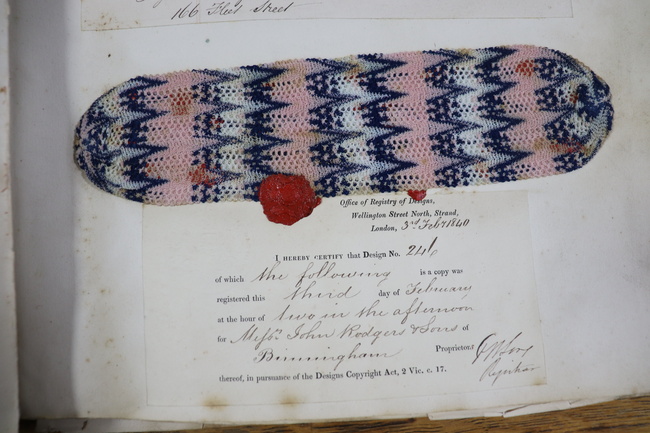 166 Fleet Street
Office of Registry of Designs,
Wellington Street North, Strand,
London, 3rd Feby 1840
I HEREBY CERTIFY that Design No. 246
of which the following is a copy was
registered this third day of February
at the hour of two in the afternoon
for Messrs. John Rodgers & Sons of
Birmingham Proprietors
thereof, in pursuance of the Designs Copyright Act, 2 Vic. c. 17.